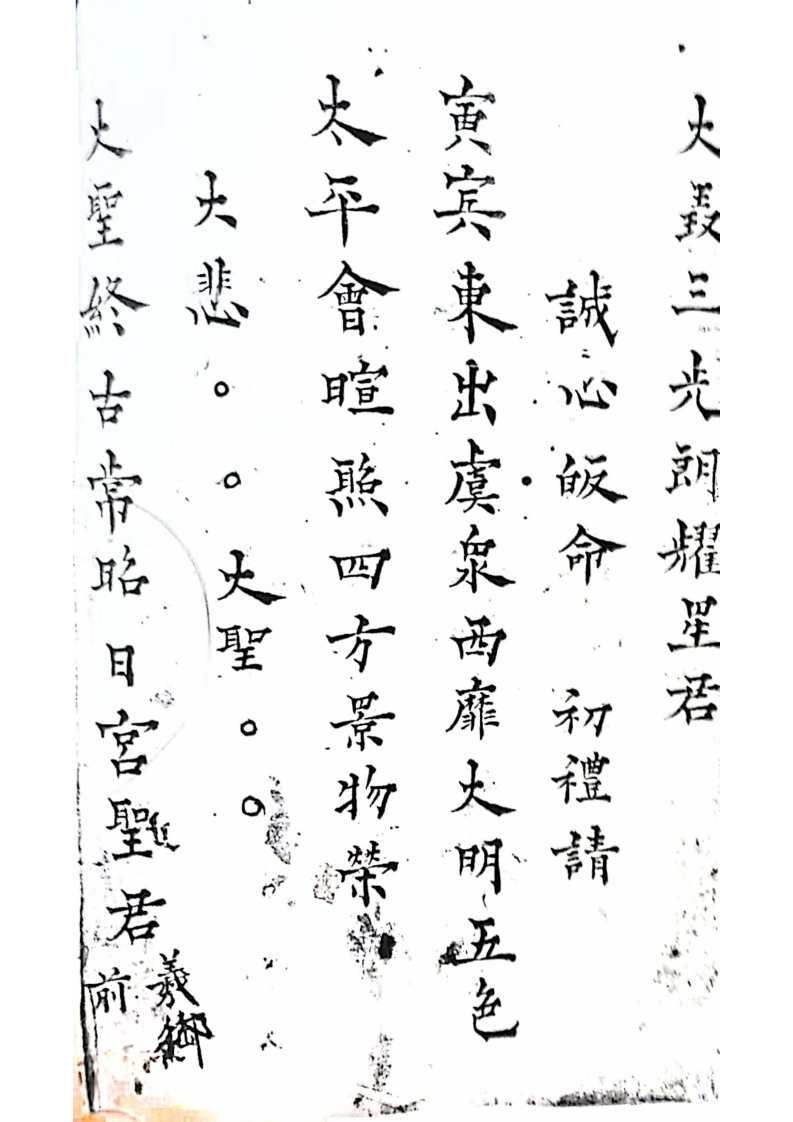 大聖三光朗耀星君
誠心皈命 初禮請
寅宾東出虞泉西靡大明五色
太平會暄照四方景物榮
大悲○○大聖○○
大聖終古常昭日宮聖君前
羲御